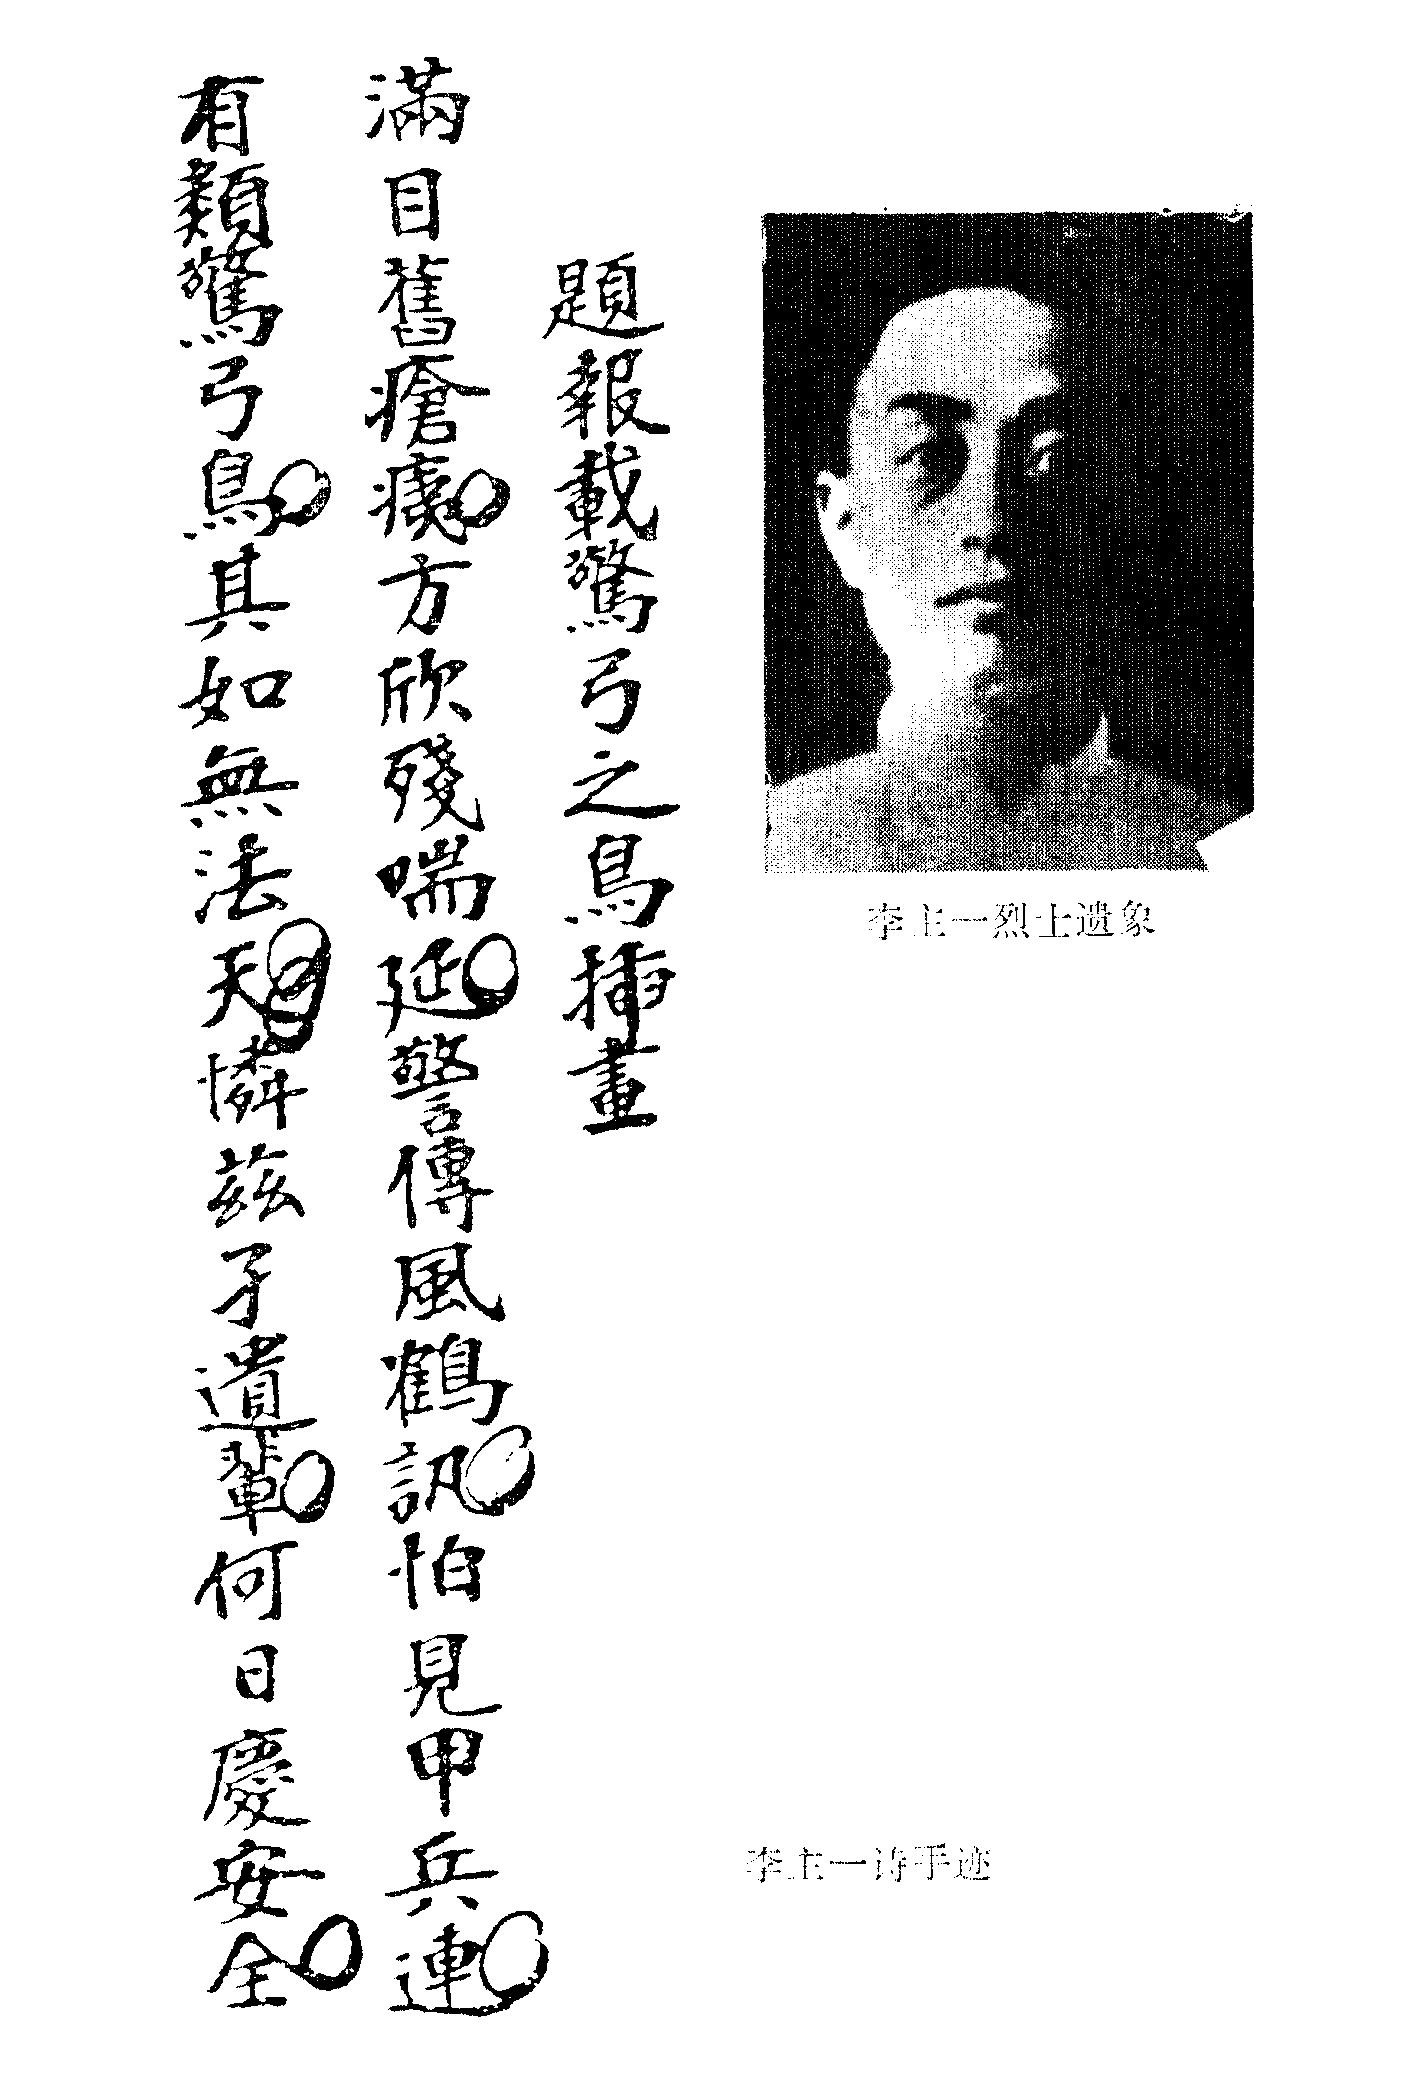 題報載驚弓之鳥插畫
滿目舊瘡痍方欣殘喘延警傳風鶴訊怕見甲兵連
有類驚弓鳥其如無法天憐茲孑遺輩何日慶安全
李主一烈士遗象
李主一诗手迹